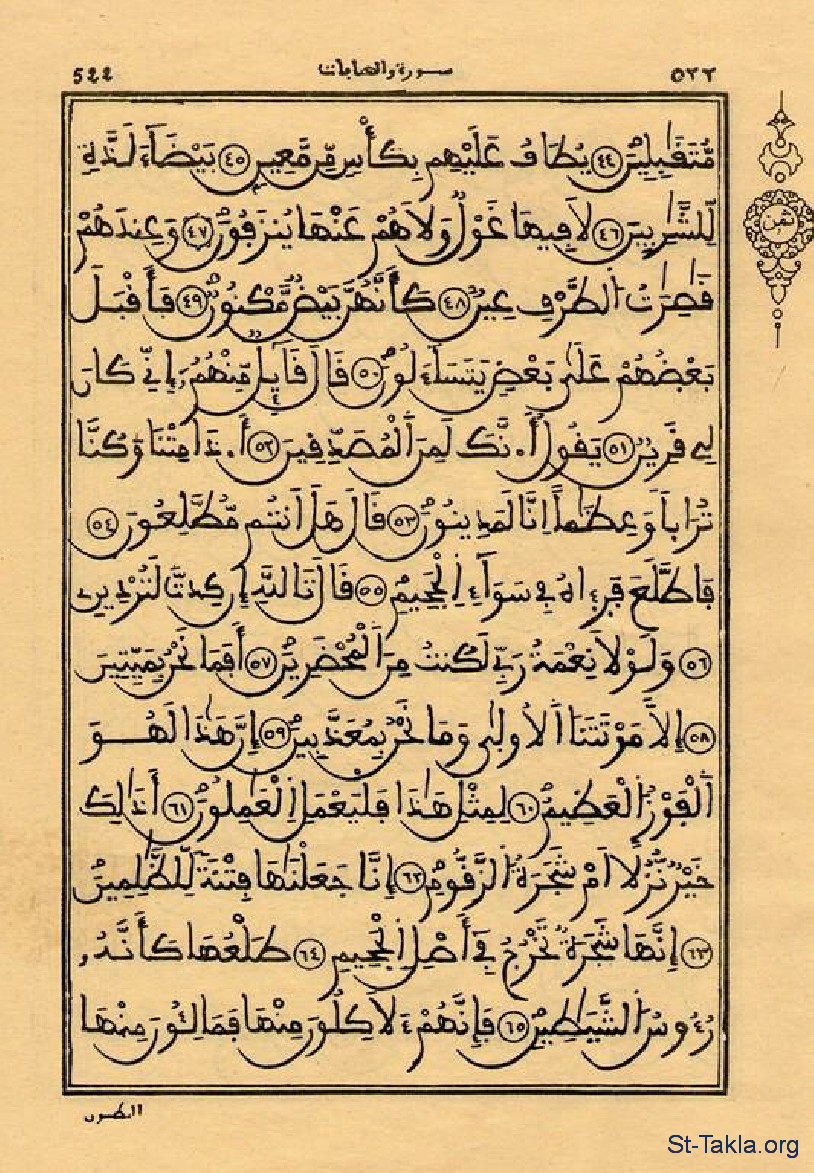 522
سورة والصافات
٥٢٢
مُّتَقَٰبِلِينَ ٤٤ يُطَافُ عَلَيْهِم بِكَأْسٍ مِّن مَّعِينٍ ٤٥ بَيْضَآءَ لَذَّةٍ
لِّلشَّٰرِبِينَ ٤٦ لَا فِيهَا غَوْلٌ وَلَا هُمْ عَنْهَا يُنزَفُونَ ٤٧ وَعِندَهُمْ
قَٰصِرَٰتُ اُ۬لطَّرْفِ عِينٌ ٤٨ كَأَنَّهُنَّ بَيْضٌ مَّكْنُونٌ ٤٩ فَأَقْبَلَ
بَعْضُهُمْ عَلَىٰ بَعْضٍ يَتَسَآءَلُونَ ٥٠ قَالَ قَآئِلٌ مِّنْهُمُۥٓ إِنِّے كَانَ
لِے قَرِينٌ ٥١ يَقُولُ أَ.نَّكَ لَمِنَ اَ۬لْمُصَدِّقِينَ ٥٢ أَ.ذَا مِتْنَا وَكُنَّا
تُرَاباً وَعِظَٰماً اِنَّا لَمَدِينُونَ ٥٣ قَالَ هَلَ اَنتُم مُّطَّلِعُونَ ٥٤
فَاطَّلَعَ فَرَءِاهُ فِے سَوَآءِ اِ۬لْجَحِيمِ ٥٥ قَالَ تَاللَّهِ إِن كِدتَّ لَتُرْدِينِ
٥٦ وَلَوْلَا نِعْمَةُ رَبِّے لَكُنتُ مِنَ اَ۬لْمُحْضَرِينَ ٥٧ أَفَمَا نَحْنُ بِمَيِّتِينَ
٥٨ إِلَّا مَوْتَتَنَا اَ۬لُاولَىٰ وَمَا نَحْنُ بِمُعَذَّبِينَ ٥٩ إِنَّ هَٰذَا لَهُوَ
اَ۬لْفَوْزُ اُ۬لْعَظِيمُ ٦٠ لِمِثْلِ هَٰذَا فَلْيَعْمَلِ اِ۬لْعَٰمِلُونَ ٦١ أَذَٰلِكَ
خَيْرٌ نُّزُلاً اَمْ شَجَرَةُ اُ۬لزَّقُّومِ ٦٢ إِنَّا جَعَلْنَٰهَا فِتْنَةً لِّلظَّٰلِمِينَ
٦٣ إِنَّهَا شَجَرَةٌ تَخْرُجُ فِےٓ أَصْلِ اِ۬لْجَحِيمِ ٦٤ طَلْعُهَا كَأَنَّهُۥ
رُءُوسُ اُ۬لشَّيَٰطِينِ ٦٥ فَإِنَّهُمْ ءَلَاكِلُونَ مِنْهَا فَمَالِئُونَ مِنْهَا
ثمن
البطون
St-Takla.org